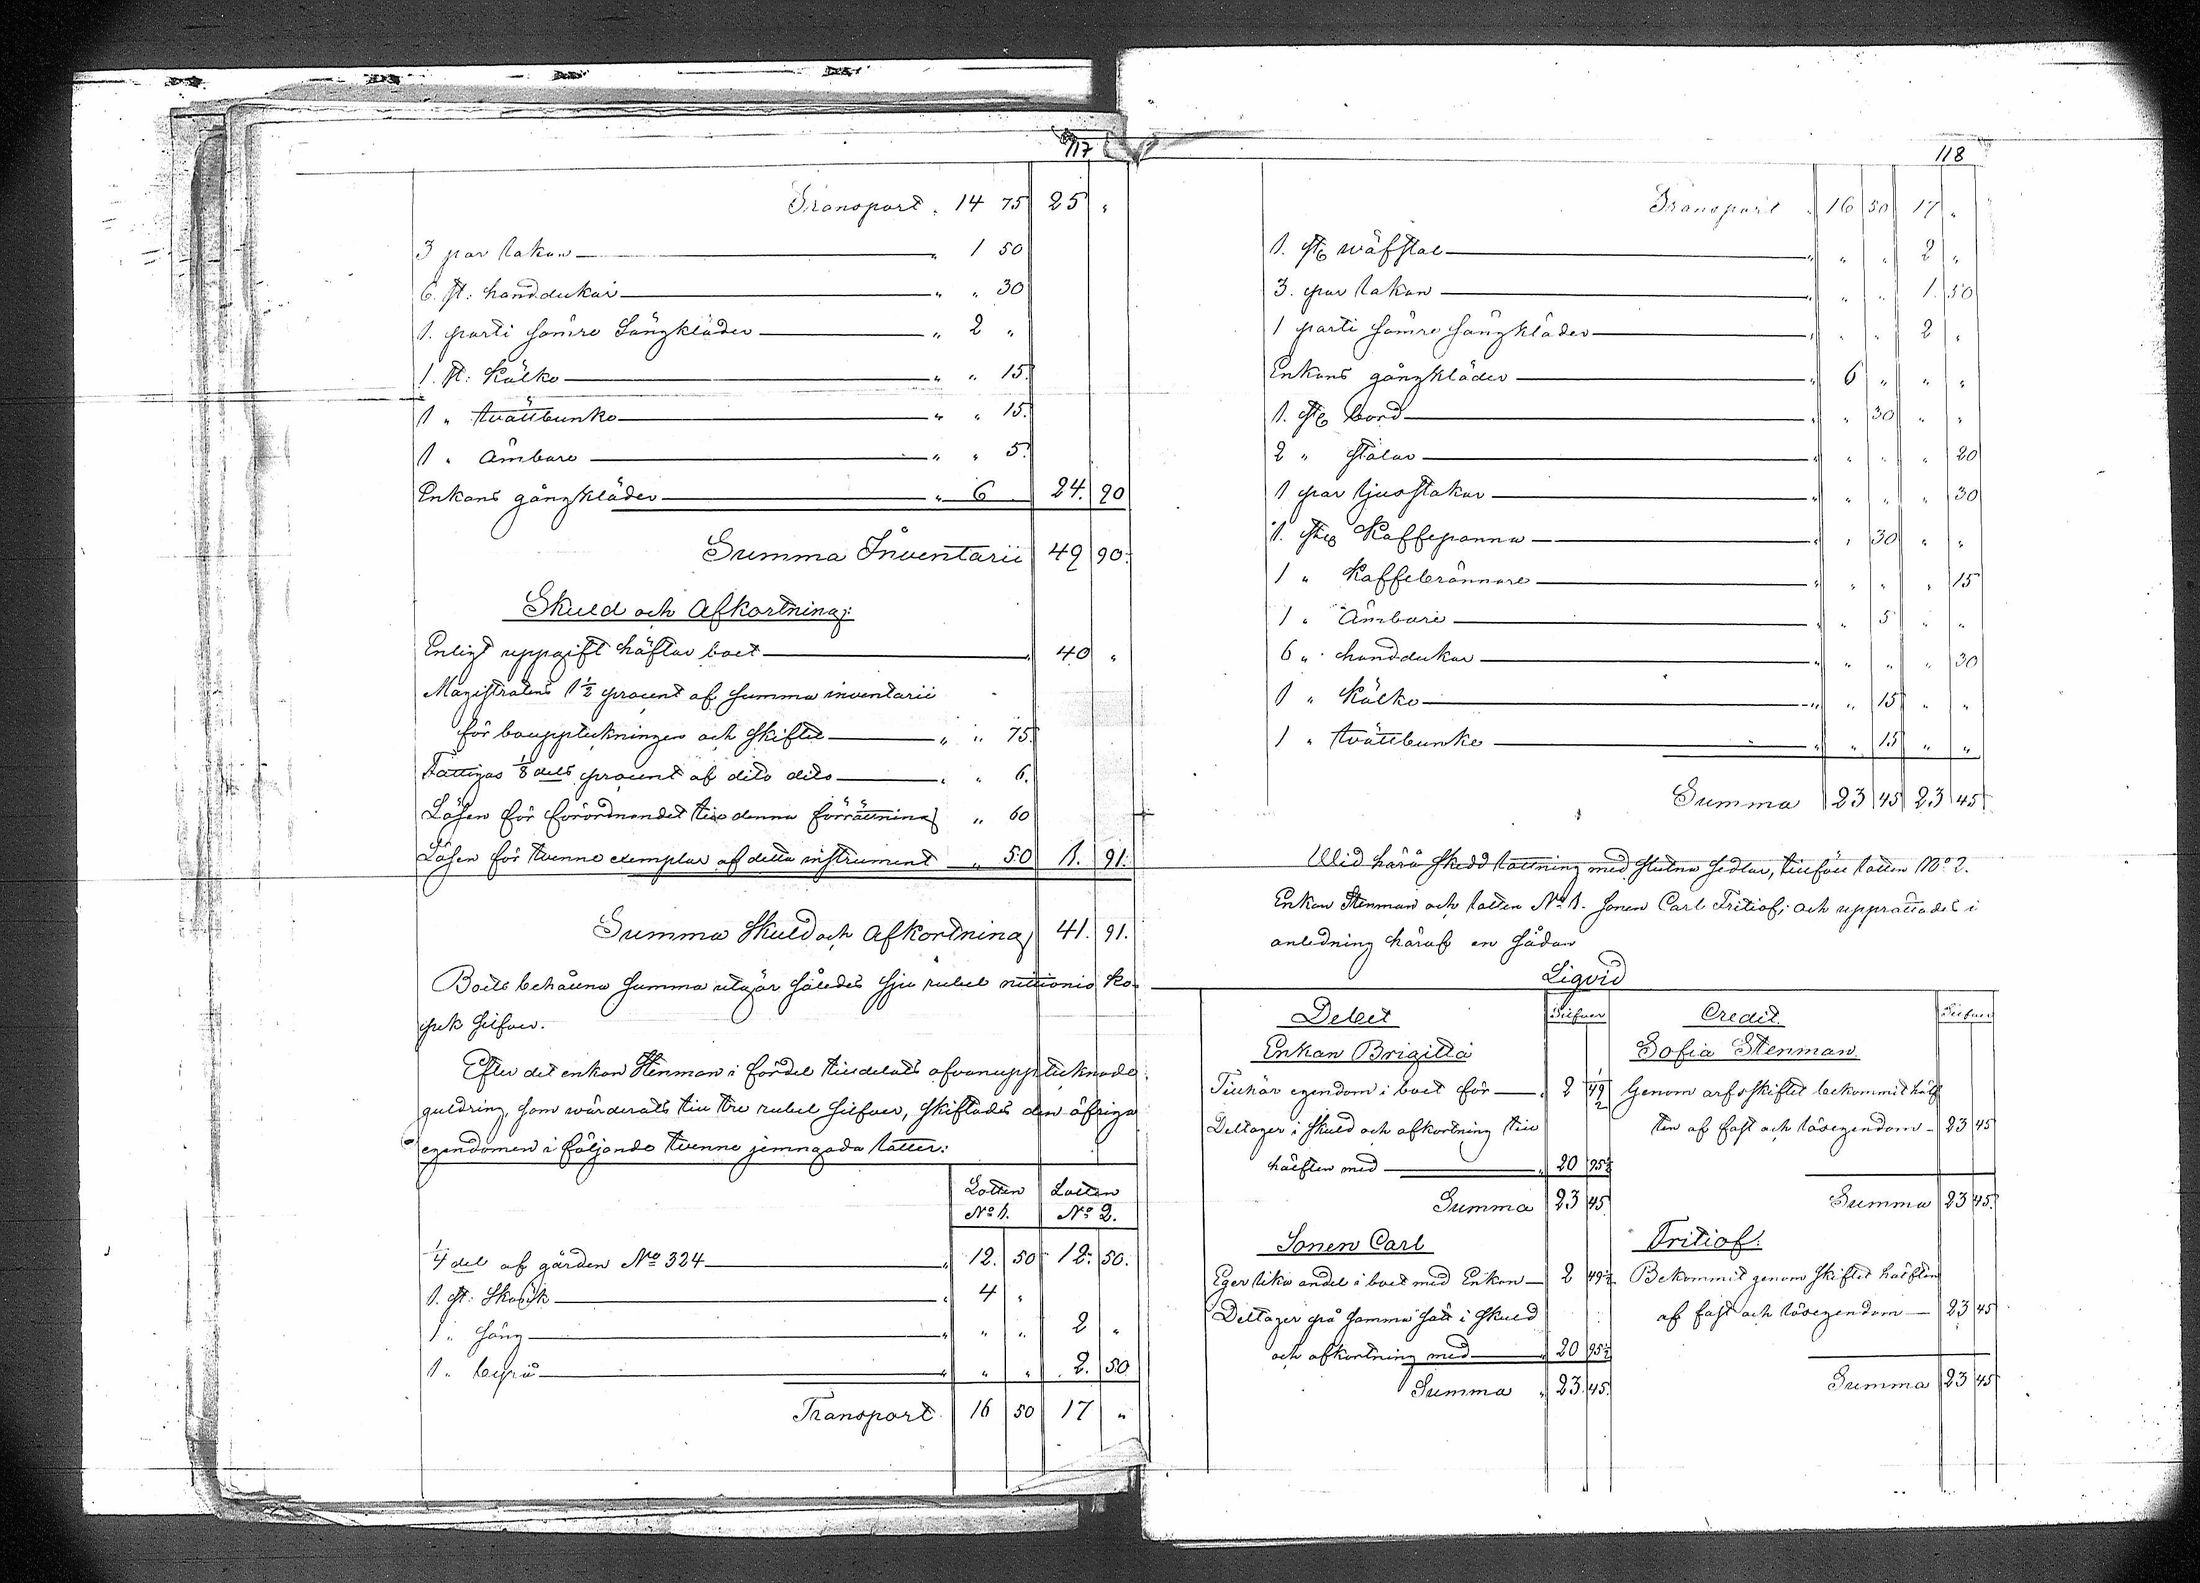 117
Transport „ 14 75 25 „
3 par lakan „ 1 50
6. st: handdukar „ „ 30
1. parti sämre Sängkläder „ 2 „
1. st: Kälke „ „ 15.
1 „ tvättbunke „ „ 15.
1 „ Ämbare „ „ 5.
Enkans gångkläder „ 6 24. 90
Summa Inventarii 49 90.
Skuld och Afkortning:
Enligt uppgift häftar boet „ 40 „
Magistratens 1 1/2 procent af summa inventarii
för bouppteckningen och skiftet „ „ 75.
Fattigas 1/8 dels procent af dito dito „ „ 6.
Lösen för förordnandet till denna förrättning „ 60
Lösen för tvenne exemplar af detta instrument „ 50 1. 91.
Summa Skuld och Afkortning 41. 91.
Boets behållna summa utgör således sju rubel nittionio ko-
pek silfver.
Efter det enkan Stenman i fördel tilldelats ofvanupptecknade
guldring, som wärderats till tre rubel silfver, skiftades den öfriga
egendomen i följande tvenne jemngoda lotter:
Lotten Lotten
No 1. No 2.
1/4 del af gården No 324 „ 12. 50 12. 50.
1. st: Skänk „ 4 „
1 „ säng „ „ „ 2 „
1 „ byrå „ „ „ 2. 50
Transport 16 50 17 „
118
Transport „ 16 50 17 „
1. st. wäfstol „ „ „ 2 „
3. par lakan „ „ „ 1. 50
1 parti sämre sängkläder „ „ „ 2 „
Enkans gångkläder „ 6 „ „ „
1. st. bord „ „ 30 „ „
2 „ stolar „ „ „ „ 20
1 par ljusstakar „ „ „ „ 30
1. st. Kaffepanna „ „ 30 „ „
1 „ Kaffebrännare „ „ „ „ 15
1 „ Ämbare „ „ 5 „ „
6 „ handdukar „ „ „ „ 30
1 „ Kälke „ „ 15 „ „
1 „ tvättbunke „ „ 15 „ „
Summa 23 45 23 45
Wid härå skedd lottning med slutna sedlar, tillföll lotten No 2.
Enkan Stenman och lotten No 1. sonen Carl Fritiof; och upprättades i
anledning häraf en sådan
Liqvid
Debet Silfver Credit. Silfver
Enkan Brigitta Sofia Stenman.
Tillhör egendom i boet för „ 2 49 1/2 Genom arfsskiftet bekommit hälf
Deltager i skuld och afkortning till ten af fast och lösegendom 23 45
hälften med „ 20 95 1/2
Summa 23 45 Summa 23 45.
Sonen Carl Fritiof.
Eger lika andel i boet med Enkan 2 49 1/2 Bekommit genom skiftet hälften
Deltager på samma sätt i skuld af fast och lösegendom 23 45
och afkortning med 20 95 1/2
Summa „ 23. 45. Summa 23 45